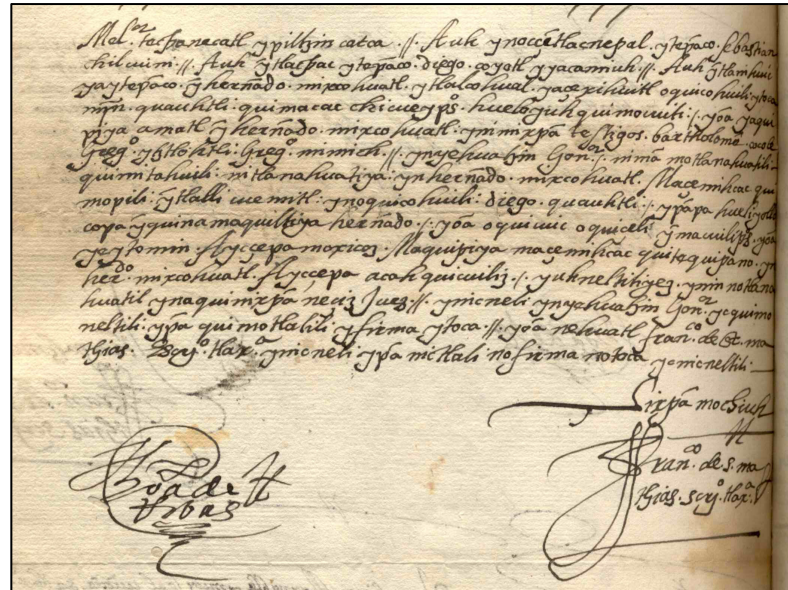 Melor. tecpanecatl ypiltzin catca .//. Auh ynoccētlacnepal. ytepāco. sebastian
chilcuim .//. Auh ȳtlacpac ytepāco. diego. coyotl yyacamiuh .//. Auh ȳtlamhuic
yaytepāco. ȳ hernādo. mixcohuatl. ytlalcohual. yacexihuitl oquicohuili. ytoca
mȳn. quauhtli. quimacac chicueyps. huelo yuh quimocuili ./. yoā yaqui
piya amatl ȳ hernādo. mixcohuatl. ynimixpā testigos. bartholome. cocol
Gregº. ybtlohtli. Gregº. mimich .//. ynyehuatzin Gonor. nimā motlanahuatili
quimitahuili. mitlanahuatiya. yn hernādo. mixcohuatl. Macemihcac qui
mopili. ȳtlalli uemitl. ynoquicohuili. diego. quauhtli ./. ypāpa huel yyollo
copa yquinamaquiltiya hernādo ./. yoā oquicuic oquiceli ȳmacuilips. yoā
yeytomin. Ayccepa moxicoz. Maquipiya macemihcac quitequipano. yn
herdo. mixcohuatl. Ayccepa acah quicuiliz ./. yuhneltiliyez. ynin notlana
huatil ynaquimixpā neciz Juez .//. ynicneli ynyehuatzin Gonor. yequimo
neltili. ypā quimotlalili yfirma ytoca .//. yoā nehuatl franco. de St. ma
thias. Scrjº. tlaxa. ynicneli ypā nictlali nofirma notoca yenicneltili
nixpā mochiuh
Joā de
Vibas
Franco. de s. ma
thias. scrjº. tlaxa.